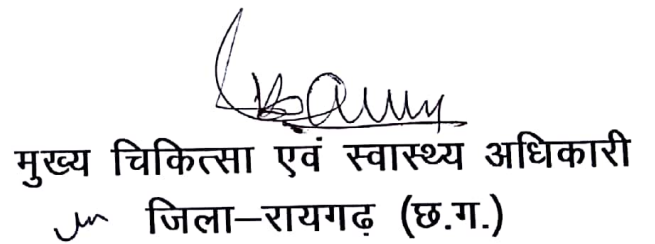 मुख्य चिकित्सा एवं स्वास्थ्य अधिकारी
जिला–रायगढ़ (छ.ग.)